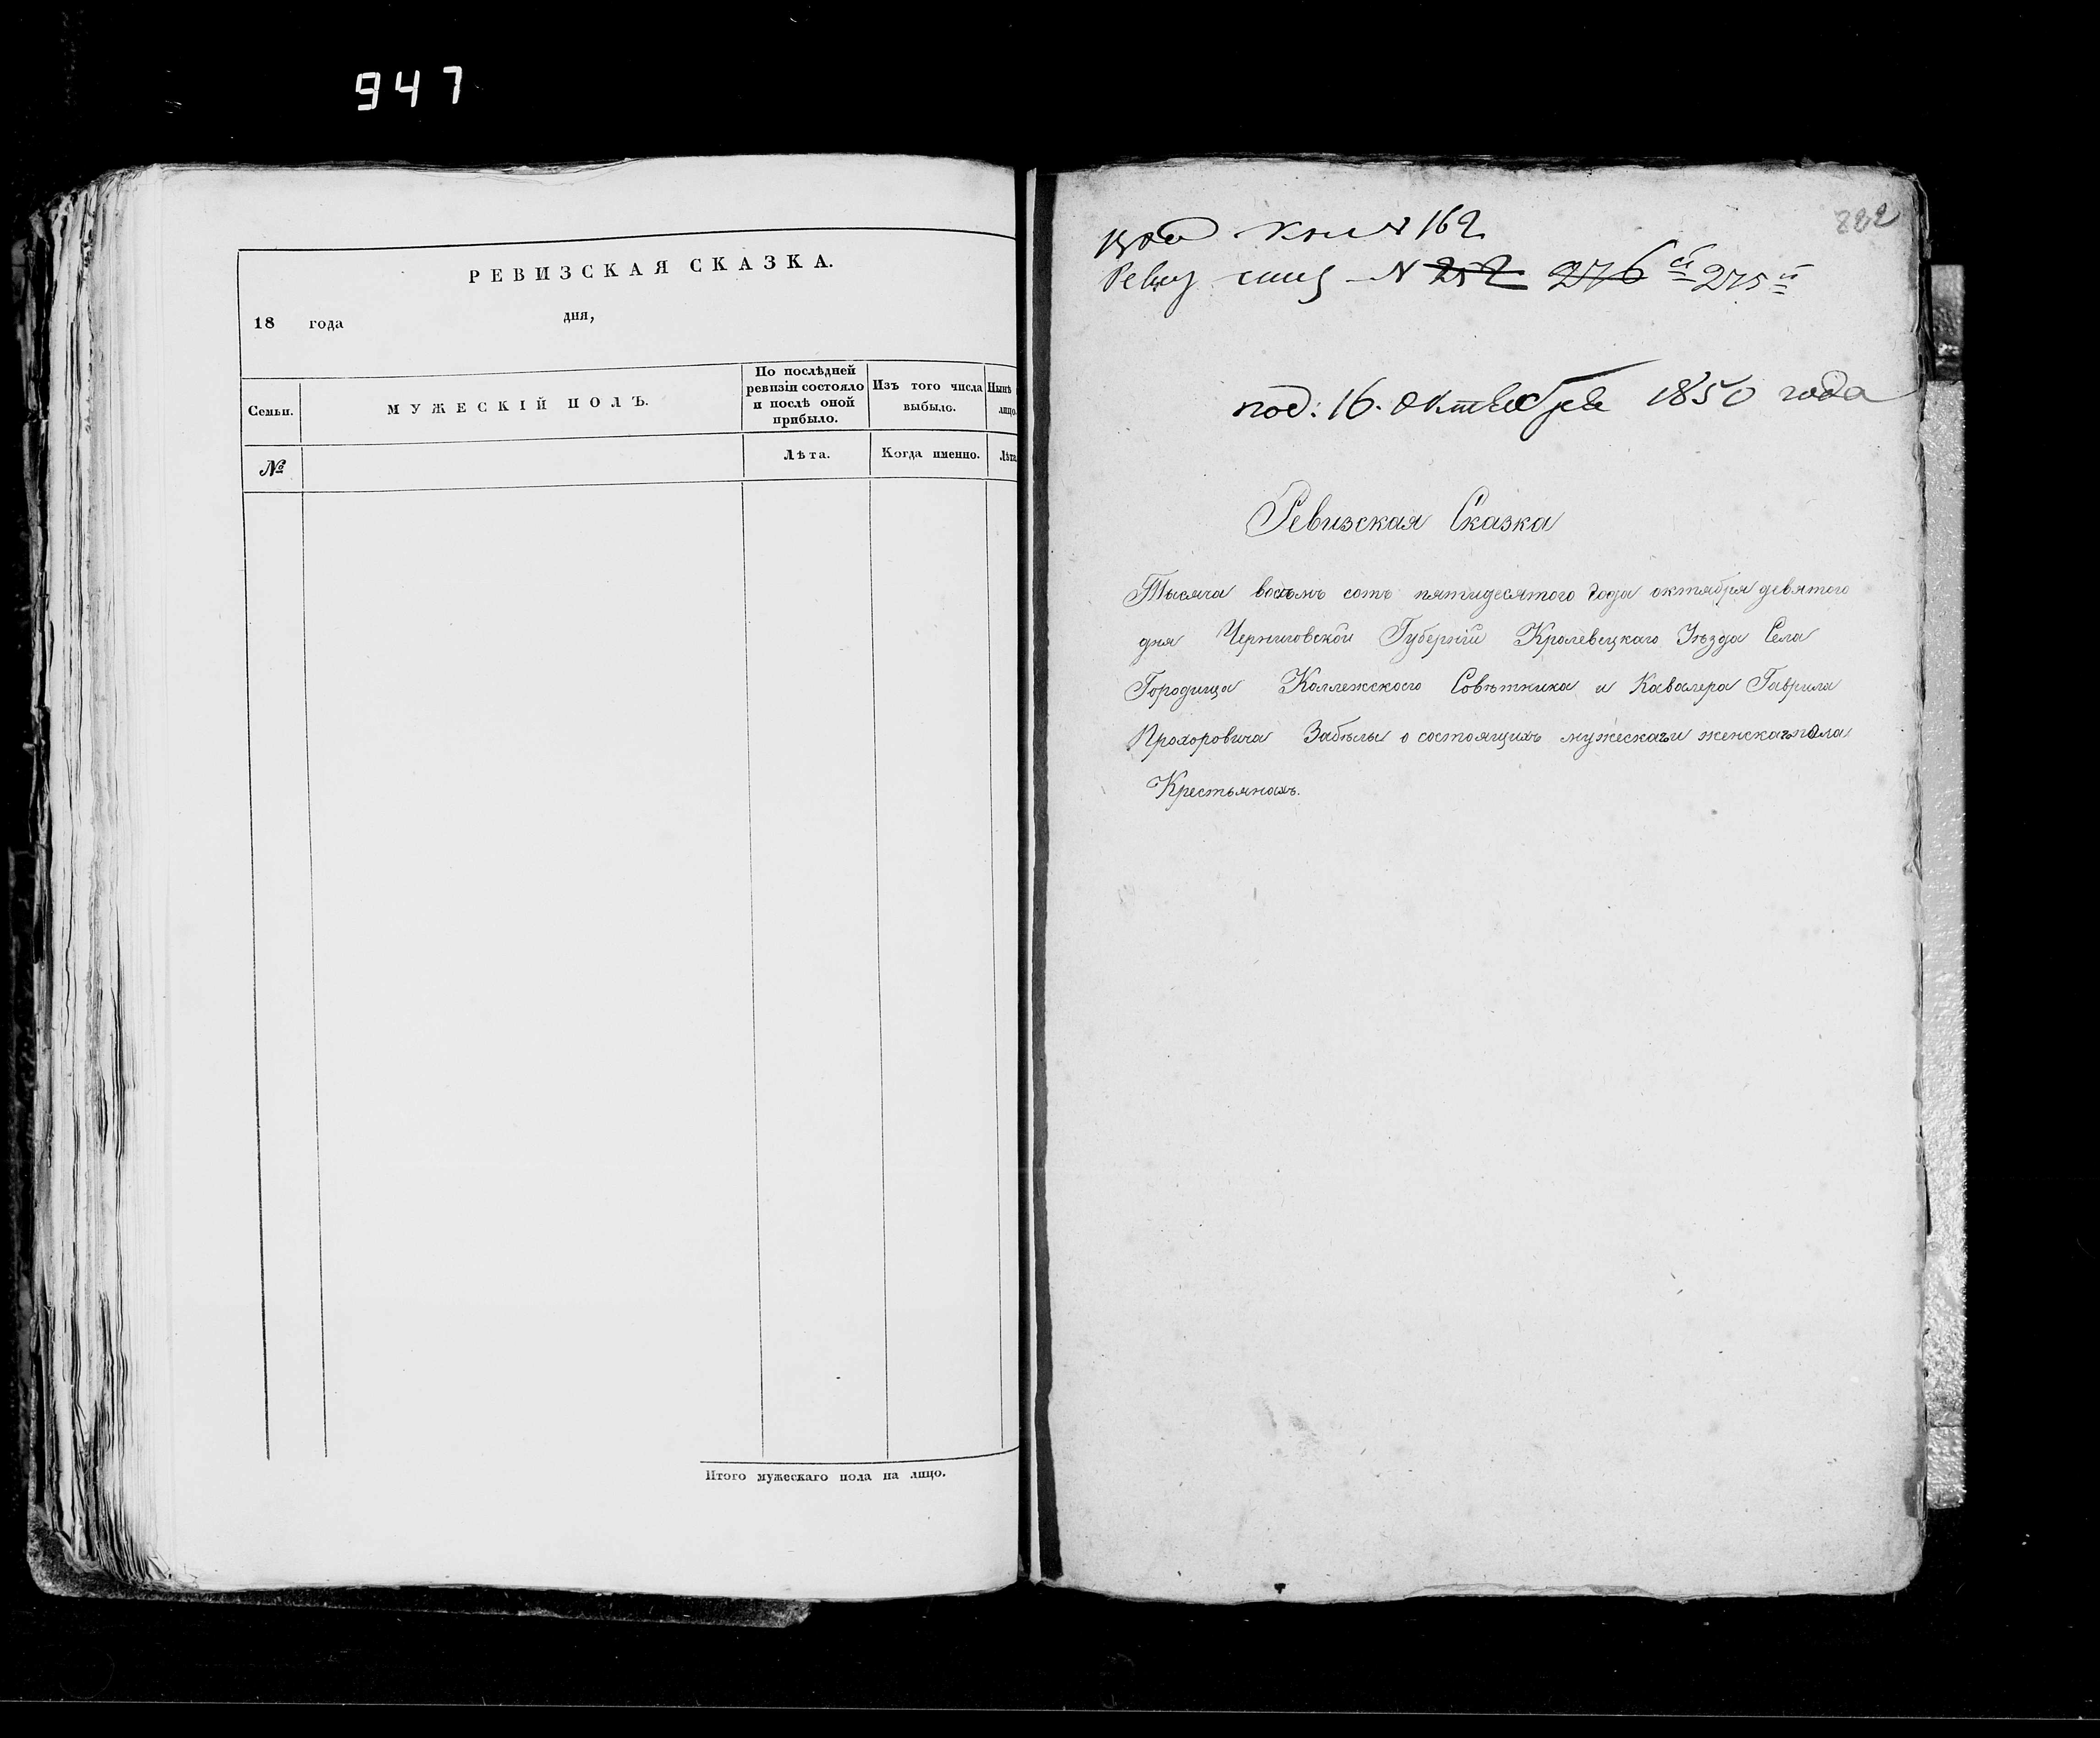 947
РЕВИЗСКАЯ СКАЗКА.
18 года дня,
Семьи.
МУЖЕСКІЙ ПОЛЪ.
По послѣдней
ревизіи состояло
и послѣ оной
прибыло.
Изъ того числа
выбыло.
Нынѣ
лицо
№
Лѣта.
Когда именно.
Лѣта
Итого мужескаго пола на лицо.
882
№ 162
Ревиз № 252 276 й 275 й
под: 16. октября 1850 года
Ревизская Сказка
Тысяча восемь сотъ пятидесятого года октября девятого
дня Черниговской Губерніи Кролевецкаго Уѣзда Села
Городища Коллежского Совѣтника и Кавалера Гаврила
Прохоровича Забѣлы о состоящихъ мужескаго и женскаго пола
Крестьянахъ.